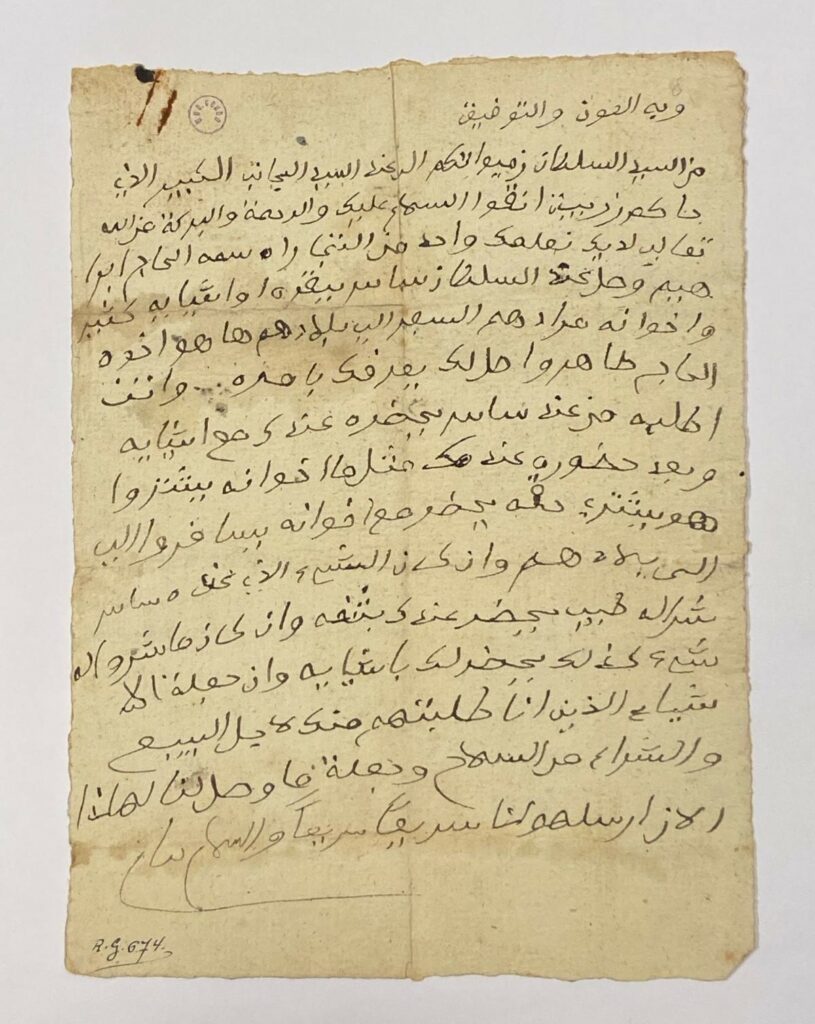 وبه العون والتوفيق
من السيد السلطان الى عند السيد الجانب الكبير الاي
حاكم انقوا السلام عليك والرحمة والبركة من الله
تعالى لا يك نعلمك واحد من التجار اه سمه الحاج ابرا
هيم وصل عند السلطان ساسر اواشيايه كثير
واخوانه مرادهم السفر الى بلادهم ها هو اخوه
الحاج طاهر واصل لك يعرفك بامره وانت
اطلبه من عند ساسر يحضره عندك مع اشيايه
وبعد حضوره عندك مثلها اخوانه بيشتروا
هو بيشتري حقه يحضر مع اخوانه بيسافروا الى
الى بلادهم وان كان الشيء الاي عنده ساسر
شراله طيب يحضر عندك بثمنه وان كان ما شرواله
شيء كذلك يحضر لك باشيايه وان جملة الا
شياء الذين انا طلبتهم منك لاجل البيع
والشراء من السلاح وجملة ما وصل لنا لهاذا
الان ارسلهو لنا سريعا سريعا والسلام
R.G. 674.